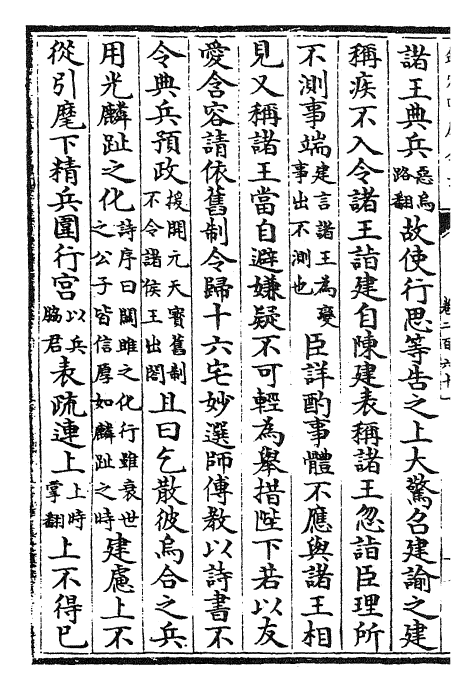 諸王典兵惡烏路翻故使行思等告之上大驚召建諭之建
稱疾不入令諸王詣建自陳建表稱諸王忽詣臣理所
不測事端建言諸王為變事出不測也臣詳酌事體不應與諸王相
見又稱諸王當自避嫌疑不可輕為舉措陛下若以友
愛含容請依舊制令歸十六宅妙選師傅教以詩書不
令典兵預政援開元天寶舊制不令諸侯王出閤且曰乞散彼烏合之兵
用光麟趾之化詩序曰關雎之化行雖衰世之公子皆信厚如麟趾之時建慮上不
從引麾下精兵圍行宮以兵脇君表疏連上上時掌翻上不得已
卷二百六十一